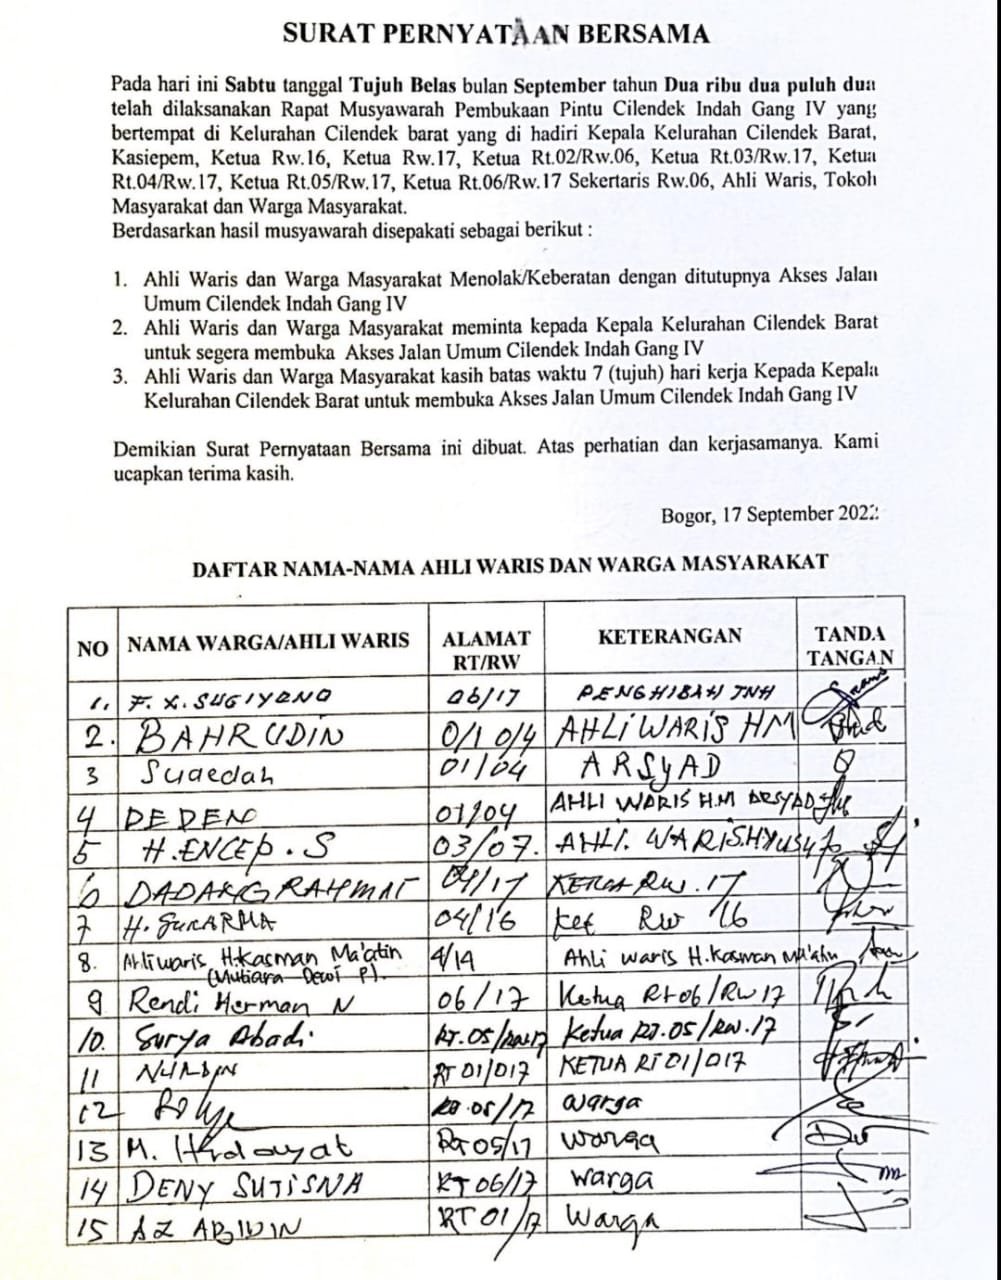 SURAT PERNYATAAN BERSAMA
Pada hari ini Sabtu tanggal Tujuh Belas bulan September tahun Dua ribu dua puluh dua
telah dilaksanakan Rapat Musyawarah Pembukaan Pintu Cilendek Indah Gang IV yang
bertempat di Kelurahan Cilendek barat yang di hadiri Kepala Kelurahan Cilendek Barat,
Kasiepem, Ketua Rw.16, Ketua Rw.17, Ketua Rt.02/Rw.06, Ketua Rt.03/Rw.17, Ketua
Rt.04/Rw.17, Ketua Rt.05/Rw.17, Ketua Rt.06/Rw.17 Sekertaris Rw.06, Ahli Waris, Tokoh
Masyarakat dan Warga Masyarakat.
Berdasarkan hasil musyawarah disepakati sebagai berikut :
1. Ahli Waris dan Warga Masyarakat Menolak/Keberatan dengan ditutupnya Akses Jalan
Umum Cilendek Indah Gang IV
2. Ahli Waris dan Warga Masyarakat meminta kepada Kepala Kelurahan Cilendek Barat
untuk segera membuka Akses Jalan Umum Cilendek Indah Gang IV
3. Ahli Waris dan Warga Masyarakat kasih batas waktu 7 (tujuh) hari kerja Kepada Kepala
Kelurahan Cilendek Barat untuk membuka Akses Jalan Umum Cilendek Indah Gang IV
Demikian Surat Pernyataan Bersama ini dibuat. Atas perhatian dan kerjasamanya. Kami
ucapkan terima kasih.
Bogor, 17 September 2022
DAFTAR NAMA-NAMA AHLI WARIS DAN WARGA MASYARAKAT
NO NAMA WARGA/AHLI WARIS ALAMAT RT/RW KETERANGAN TANDA TANGAN
1. F. X. SUGIYONO 06/17 PENGHIBAH TNH
2. BAHRUDIN 0/1 0/4 AHLI WARIS HM
3 Suaedah 01/04 ARSYAD
4 DEDEN 01/04 AHLI WARIS H.M ARSYAD
5 H.ENCEP.S 03/07. AHLI. WARIS.H YUSUF
6 DADANG RAHMAT 04/17 KETUA RW. 17
7 H. SUKARMA 04/16 Ket RW 16
8. Ahli waris H.Kasman Ma'atin 4/14 Ahli waris H.Kasman Ma'atin
(Mutiara Dewi P).
9 Rendi Herman N 06/17 Ketua Rt 06/RW 17
10. Surya Abadi. RT.05/RW.17 Ketua RT.05/RW.17
11 RT 01/017 KETUA RT 01/017
12 05/17 warga
13 M. Hidayat RT 05/17 warga
14 DENY SUTISNA RT 06/17 warga
15 AZ ABIDIN RT 01/17 Warga